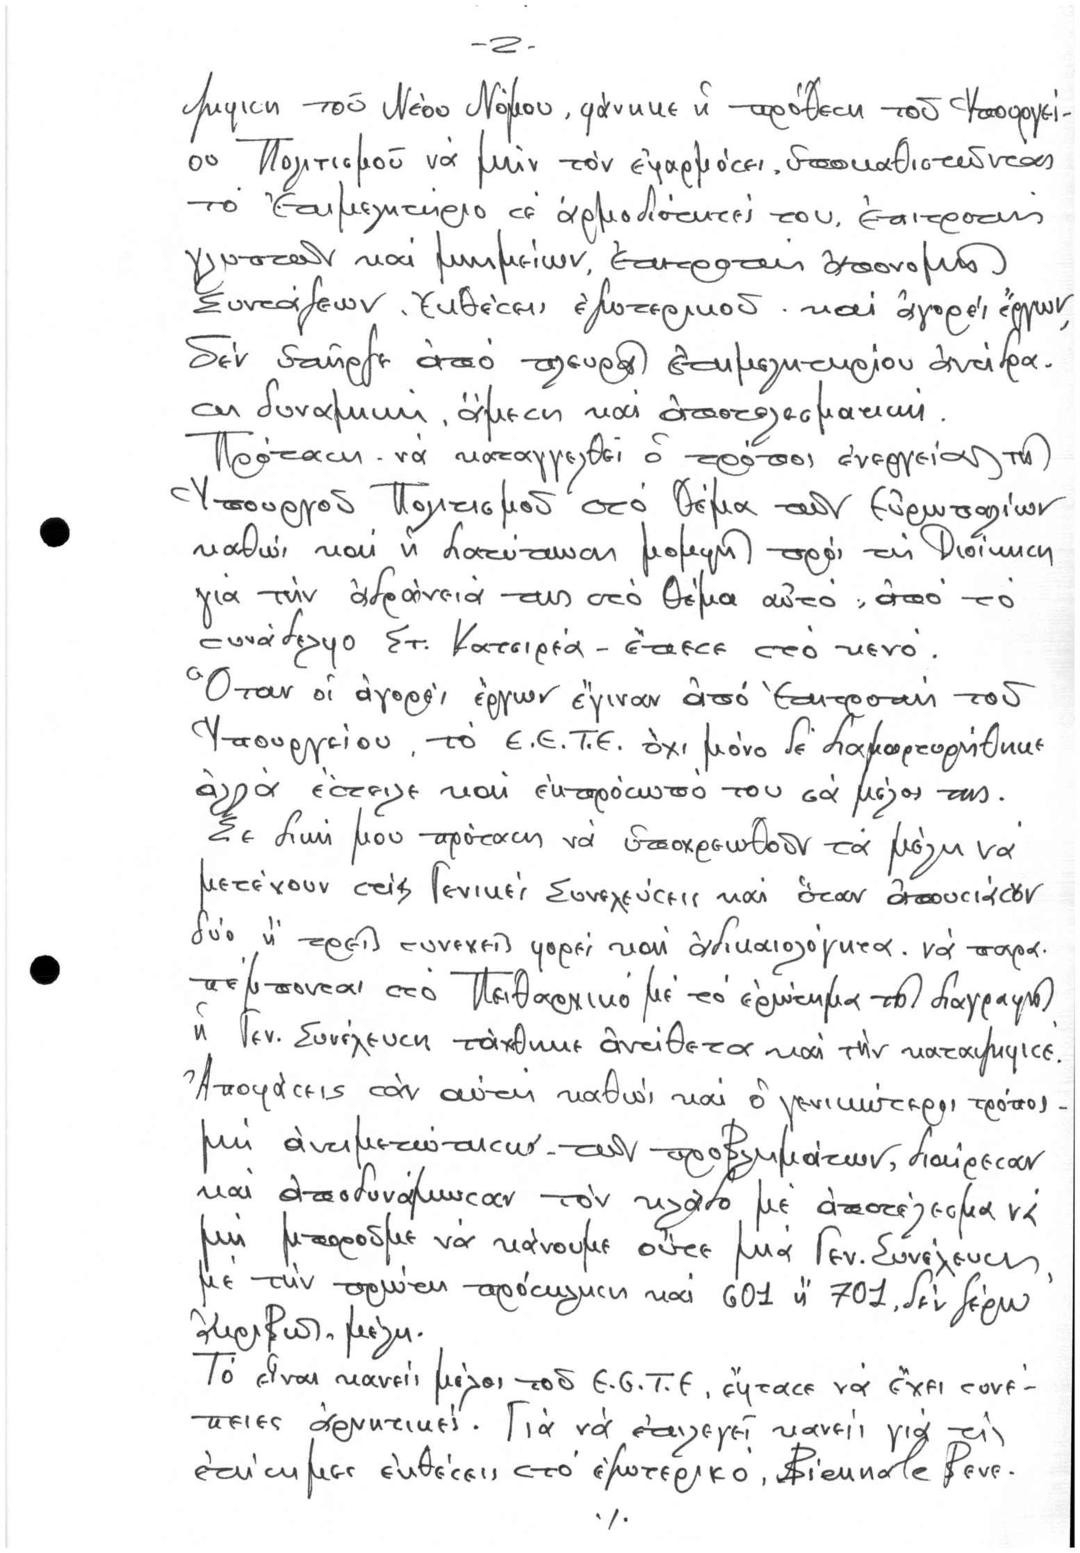 -2-
ψηφιση τοῦ Νέου Νόμου, φάνηκε ἡ πρόθεση τοῦ Ὑπουργεί-
ου Πολιτισμοῦ νά μήν τόν ἐφαρμόσει, ὑποκαθιστώντας
τό Ἐπιμελητήριο σέ ἁρμοδιότητές του, ἐπιτροπής
γλυπτῶν καί μνημείων, ἐπιτροπής ἀπονομῆς
Συντάξεων, Ἐκθέσεις ἐξωτερικοῦ. καί ἀγορές ἔργων,
δέν ὑπῆρξε ἀπό πλευρᾶς ἐπιμελητηρίου ἀντίδρα-
ση δυναμική, ἄμεση καί ἀποτελεσματική.
Πρόταση νά καταγγελθεῖ ὁ τρόπος ἐνεργείας τῆς
Ὑπουργοῦ Πολιτισμοῦ στό θέμα τῶν Εὐρωπαλίων
καθώς καί ἡ διατύπωση μομφῆς πρός τή Διοίκηση
γιά τήν ἀδράνειά της στό θέμα αὐτό, ἀπό τό
συνάδελφο Στ. Κατσιρέα - ἔπεσε στό κενό.
Ὅταν οἱ ἀγορές ἔργων ἔγιναν ἀπό Ἐπιτροπή τοῦ
Ὑπουργείου, τό Ε.Ε.Τ.Ε. ὄχι μόνο δέ διαμαρτυρήθηκε
ἀλλά ἔστειλε καί ἐκπρόσωπό του σά μέλος της.
Σέ δική μου πρόταση νά ὑποχρεωθοῦν τά μέλη νά
μετέχουν στίς Γενικές Συνελεύσεις καί ὅταν ἀπουσιάσουν
δύο ἤ τρεῖς συνεχεῖς φορές καί ἀδικαιολόγητα. νά παρα-
πέμπονται στό Πειθαρχικό μέ τό ἐρώτημα τῆς διαγραφῆς
ἡ Γεν. Συνέλευση τάχθηκε ἀντίθετα καί τήν καταψήφισε.
Ἀποφάσεις σάν αὐτή καθώς καί ὁ γενικώτερος τρόπος-
μή ἀντιμετώπισης- τῶν προβλημάτων, διαίρεσαν
καί ἀποδυνάμωσαν τόν κλάδο μέ ἀποτέλεσμα νά
μή μποροῦμε νά κάνουμε οὔτε μιά Γεν. Συνέλευση,
μέ τήν πρώτη πρόσκληση καί 601 ἤ 701, δέν ξέρω
ἀκριβῶς, μέλη.
Τό εἶναι κανείς μέλος τοῦ Ε.Ε.Τ.Ε, ἔφτασε νά ἔχει συνέ-
πειες ἀρνητικές. Γιά νά ἐπιλεγεῖ κανείς γιά τίς
ἐπίσημες ἐκθέσεις στό ἐξωτερικό, Biennale Βενε-
./.